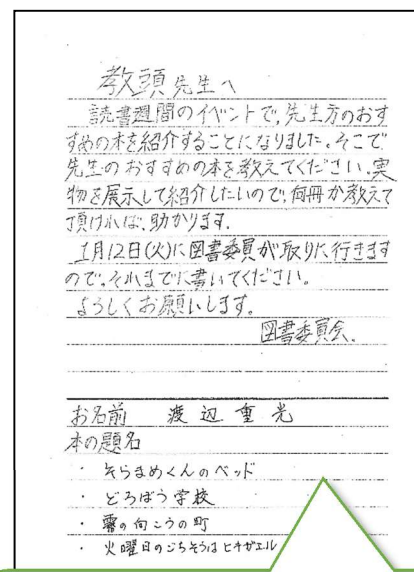 教頭先生へ
読書週間のイベントで、先生方のおす
すめの本を紹介することになりました。そこで
先生のおすすめの本を教えてください。実
物を展示して紹介したいので、何冊か教えて
頂ければ、助かります。
1月12日(火)に図書委員が取りに行きます
ので、それまでに書いてください。
よろしくお願いします。
図書委員会、
お名前 渡辺重光
本の題名
・そらまめくんのベッド
・どろぼう学校
・雲の向こうの町
・火曜日のごちそうはヒキガエル